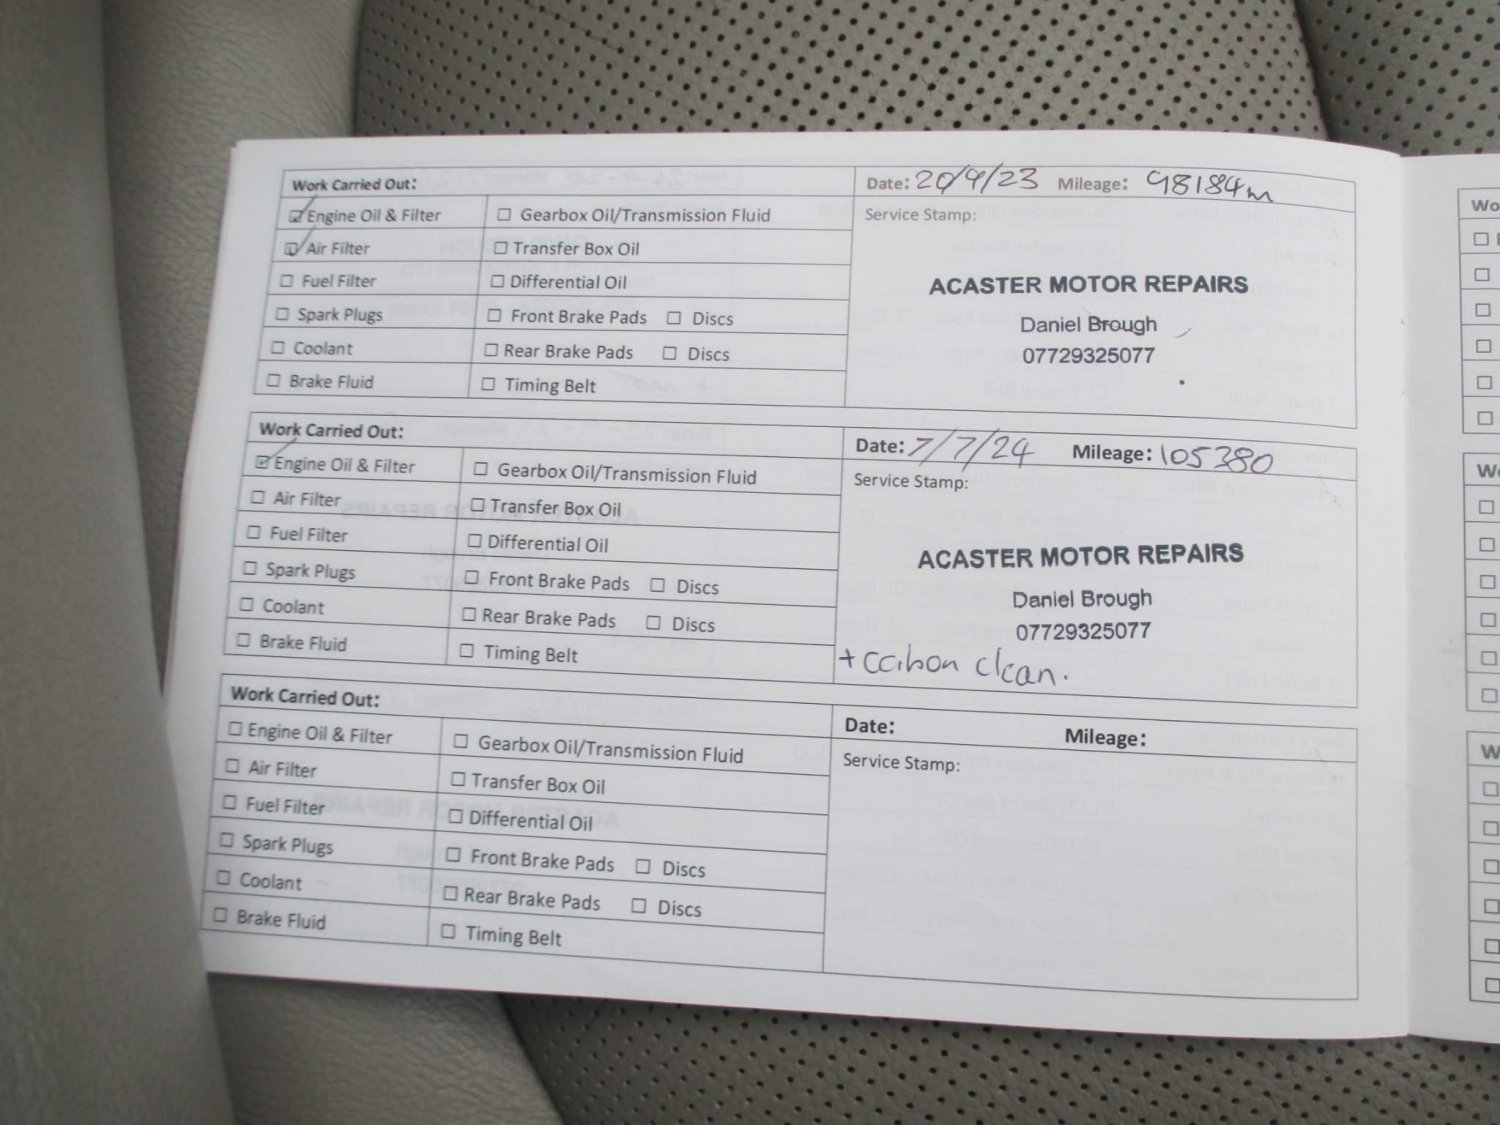 Work Carried Out:
Date: 20/9/23 Mileage: 98184m
☑ Engine Oil & Filter ☐ Gearbox Oil/Transmission Fluid
☑ Air Filter ☐ Transfer Box Oil
☐ Fuel Filter ☐ Differential Oil
☐ Spark Plugs ☐ Front Brake Pads ☐ Discs
☐ Coolant ☐ Rear Brake Pads ☐ Discs
☐ Brake Fluid ☐ Timing Belt
Service Stamp:
ACASTER MOTOR REPAIRS
Daniel Brough
07729325077
Work Carried Out:
Date: 7/7/24 Mileage: 105380
☑ Engine Oil & Filter ☐ Gearbox Oil/Transmission Fluid
☐ Air Filter ☐ Transfer Box Oil
☐ Fuel Filter ☐ Differential Oil
☐ Spark Plugs ☐ Front Brake Pads ☐ Discs
☐ Coolant ☐ Rear Brake Pads ☐ Discs
☐ Brake Fluid ☐ Timing Belt
Service Stamp:
ACASTER MOTOR REPAIRS
Daniel Brough
07729325077
+ carbon clean.
Work Carried Out:
Date: Mileage:
☐ Engine Oil & Filter ☐ Gearbox Oil/Transmission Fluid
☐ Air Filter ☐ Transfer Box Oil
☐ Fuel Filter ☐ Differential Oil
☐ Spark Plugs ☐ Front Brake Pads ☐ Discs
☐ Coolant ☐ Rear Brake Pads ☐ Discs
☐ Brake Fluid ☐ Timing Belt
Service Stamp: